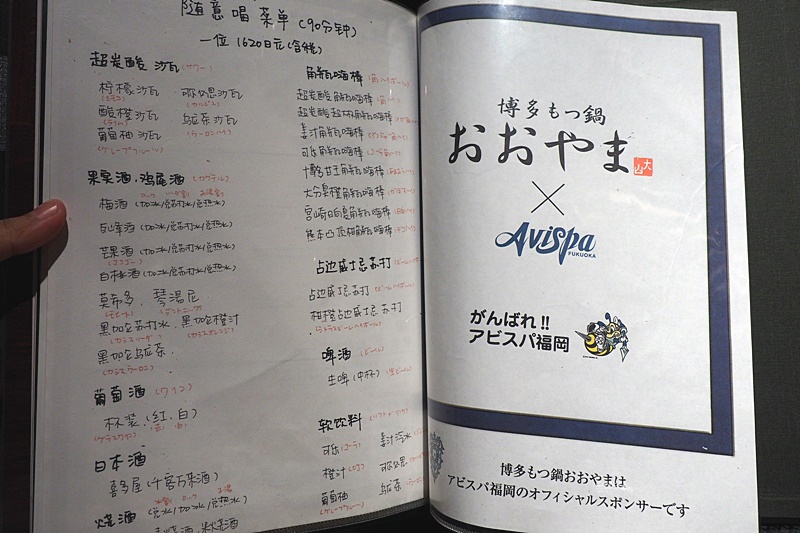 随意喝 菜单 (90分钟)
一位 1620日元(含税)
超炭酸 沙瓦(サワー)
柠檬沙瓦 可尔思沙瓦
(レモン) (カルピス)
酸橙沙瓦 乌龙茶沙瓦
(ライム) (ウーロンハイ)
葡萄柚沙瓦
(グレープフルーツ)
果实酒,鸡尾酒(カクテル)
梅酒(加冰/兑苏打水/兑热水)
芒果酒(加冰/兑苏打水/兑热水)
(マンゴー)
白桃酒(加冰/兑苏打水/兑热水)
莫希多,
(モヒート)
黑加仑苏打水,黑加仑橙汁
(カシスソーダ) (カシスオレンジ)
黑加仑乌龙茶
(カシスウーロン)
葡萄酒(ワイン)
杯装(红,白)
(グラスワイン)
日本酒
喜多屋(千客万来酒)
烧酒(兑水/加冰/兑热水)
角瓶嗨棒
超炭酸角瓶嗨棒
姜汁角瓶嗨棒
可乐角瓶嗨棒
大分臭橙角瓶嗨棒
宫崎日向夏角瓶嗨棒
熊本凸顶柑角瓶嗨棒
占边威士忌苏打
占边威士忌苏打
柑橙占边威士忌苏打
啤酒(ビール)
生啤(中杯)
软饮料(ソフトドリンク)
可乐(コーラ) 姜汁汽水
橙汁 可尔思
葡萄柚 乌龙茶
(グレープフルーツ)
博多もつ鍋
おおやま
大山
×
Avispa
FUKUOKA
がんばれ!!
アビスパ福岡
博多もつ鍋おおやまは
アビスパ福岡のオフィシャルスポンサーです